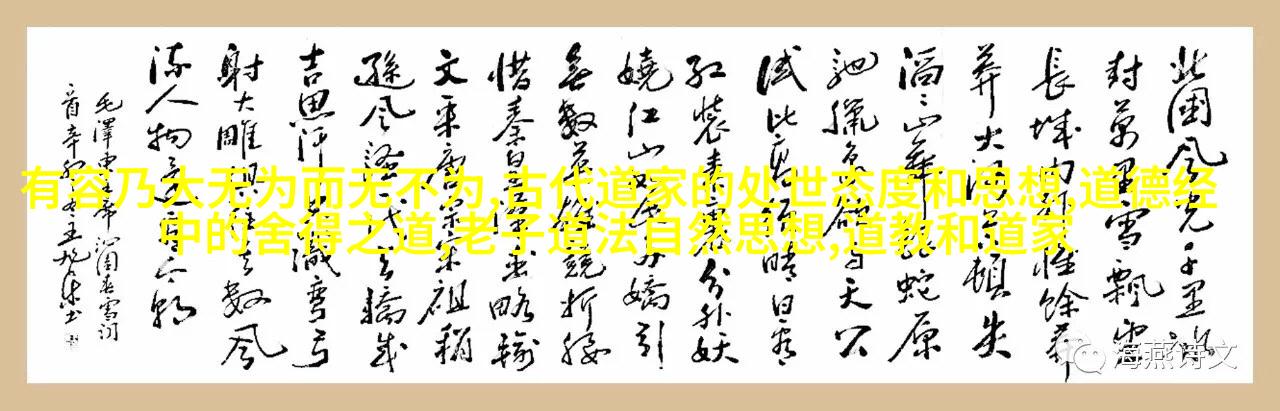 有容乃大无为而无不为,古代道家的处世态度和思想,道德经
中的舍得之道,老子道法自然思想,道教和道家
北國风光千里冰
封萬里雪飘望
長城内外惟餘莽
莽大河上下頓失
滔滔山舞银蛇原
驰蠟象欲与天公
试比高须晴日看
红装素裹分外妖
娆江山如此多嬌引
無數英雄競折腰
惜秦皇漢武略输
文采唐宗宋祖稍
遜风骚一代天驕成
吉思汗只識弯弓
射大雕俱往矣數风
流人物还看今朝
毛澤東主席沁園春雪词
海燕诗文